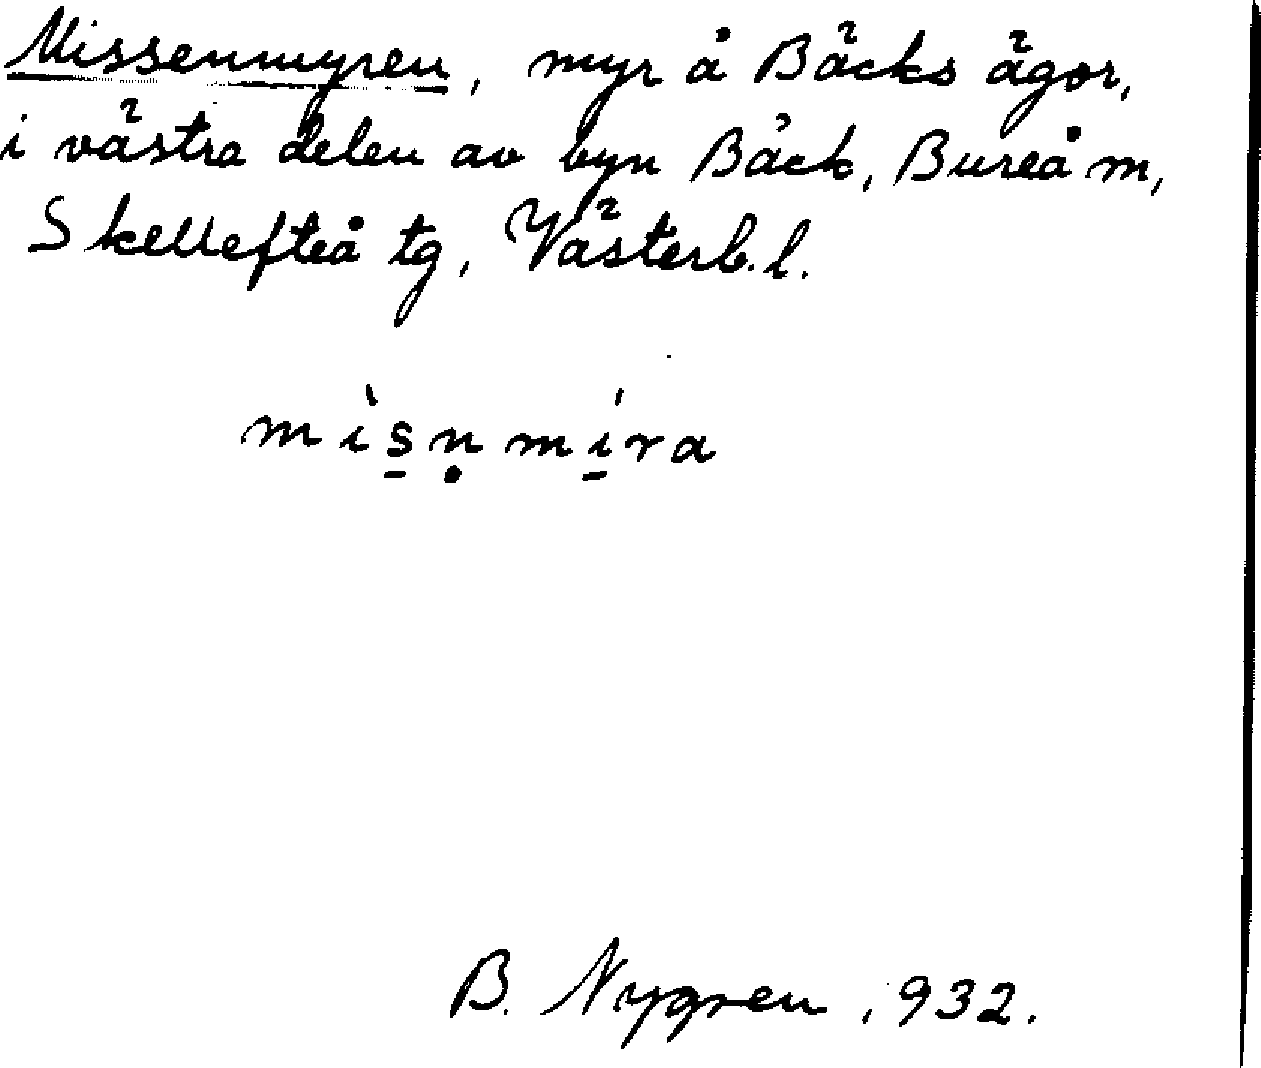 Missenmyren, myr å Bäcks ägor,
i västra delen av byn Bäck, Bureå m,
Skellefteå tg, Västerb. l.
mìs̱ṇmí̱ra
B. Nygren, 932.